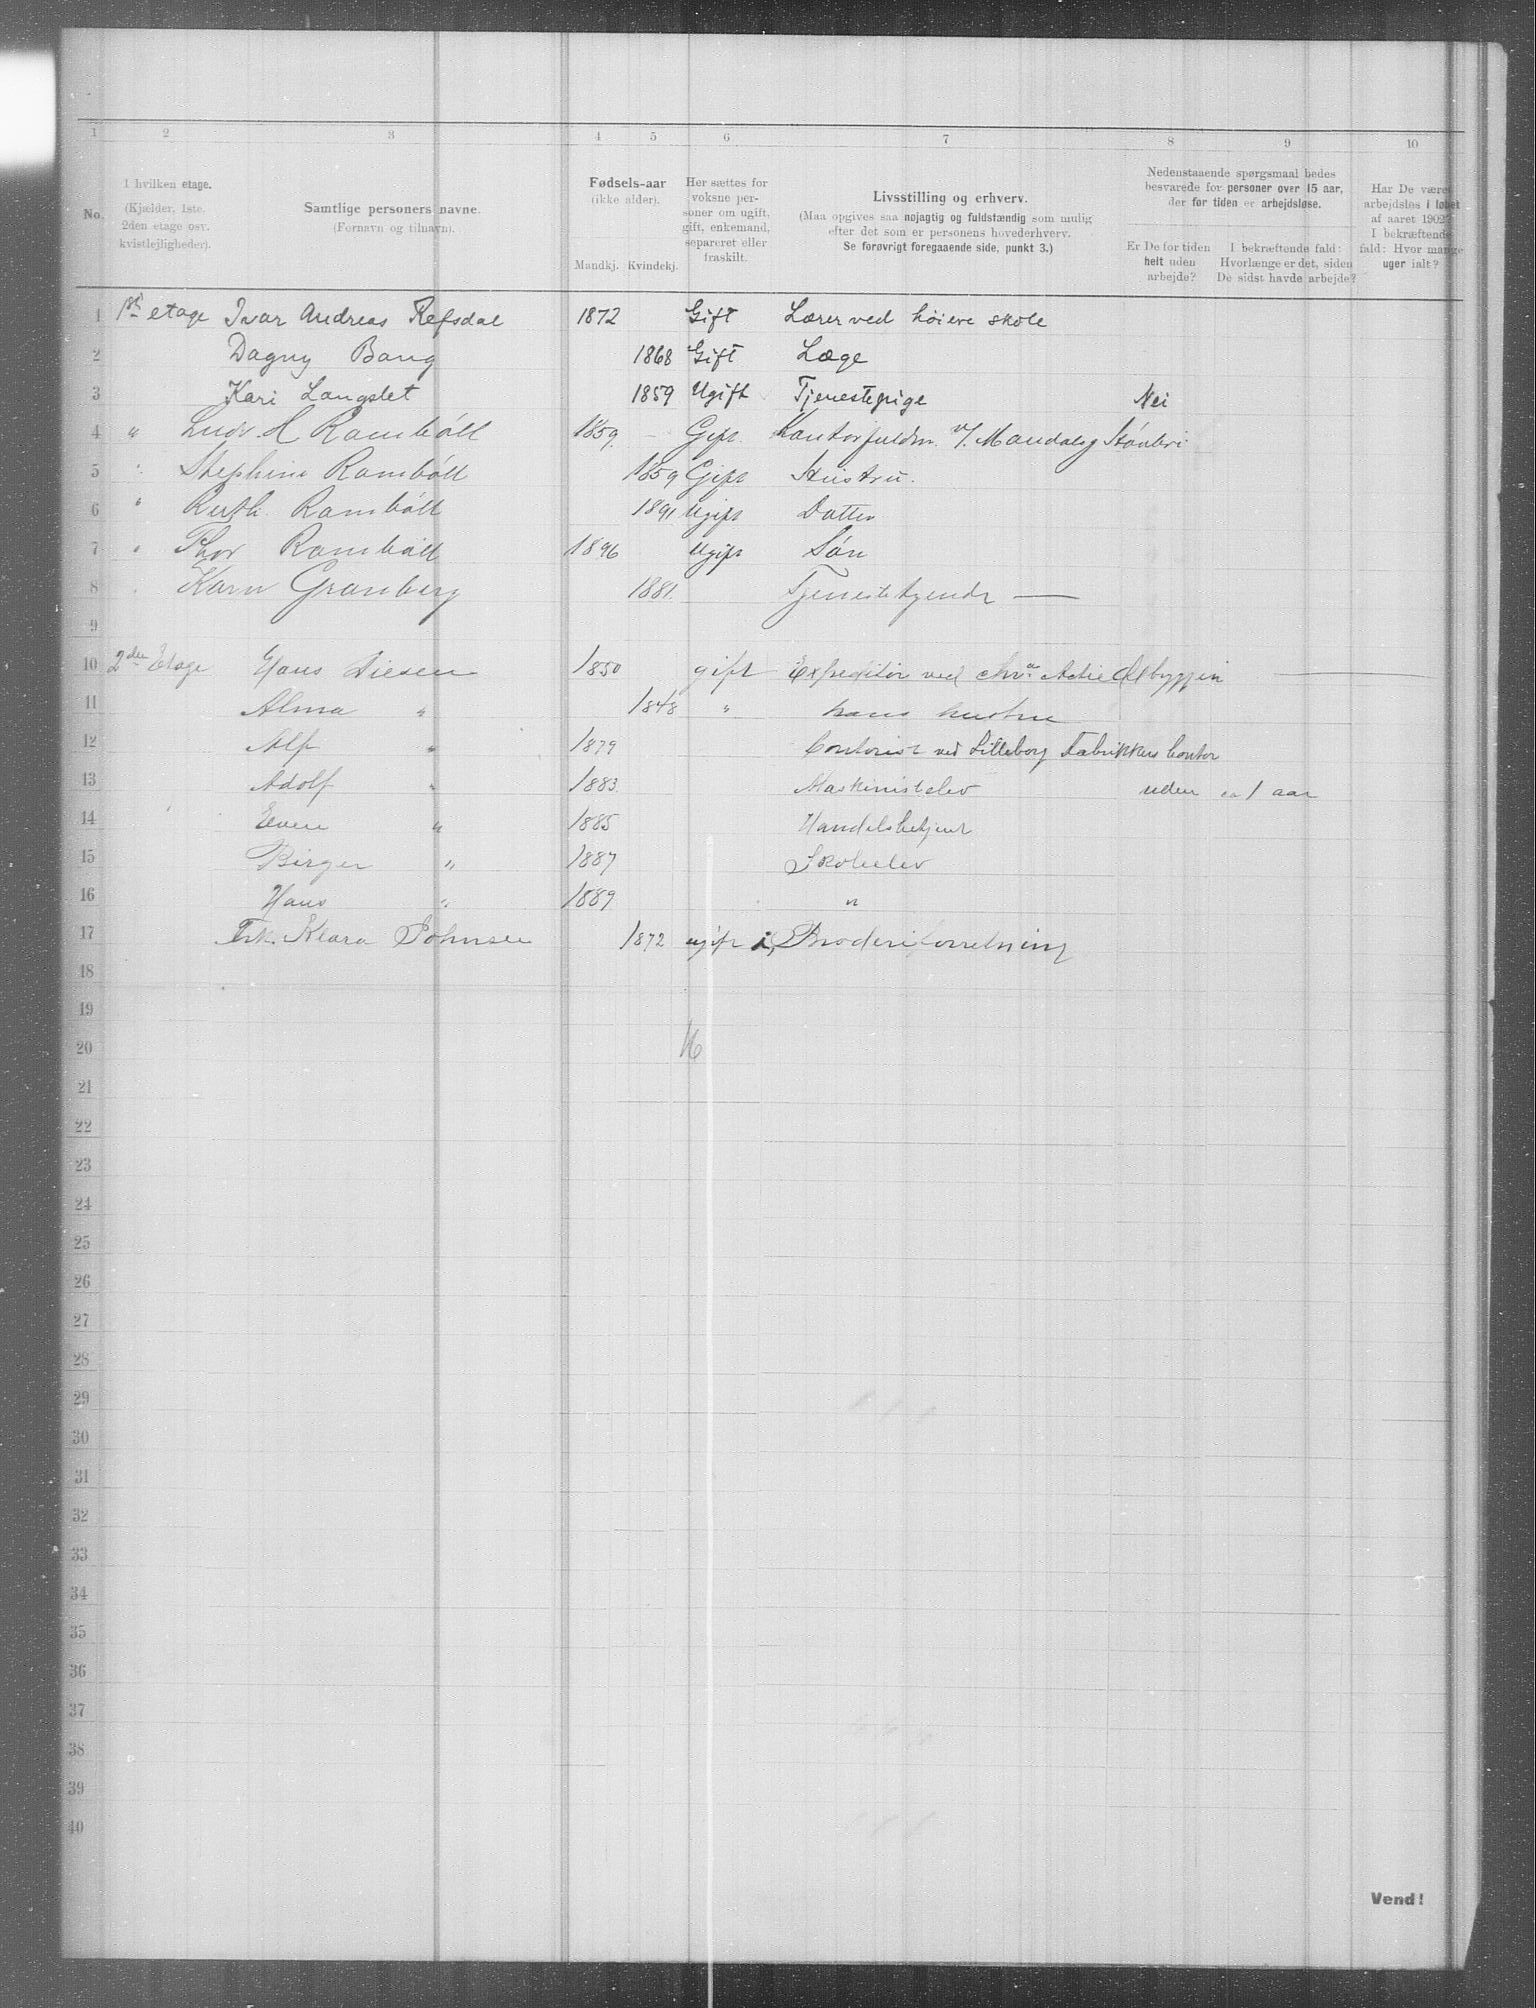 1 2 3 4 5 6 7 8 9 10
No.
I hvilken etage.
(Kjælder, 1ste, 2den etage osv. kvistlejligheder).
Samtlige personers navne.
(Fornavn og tilnavn).
Fødsels-aar
(ikke alder).
Mandkj. Kvindekj.
Her sættes for voksne personer om ugift, gift, enkemand, separeret eller fraskilt.
Livsstilling og erhverv.
(Maa opgives saa nøjagtig og fuldstændig som mulig
efter det som er personens hovederhverv.
Se forøvrigt foregaaende side, punkt 3.)
Nedenstaaende spørgsmaal bedes
besvarede for personer over 15 aar,
der for tiden er arbejdsløse.
Er De for tiden helt uden arbejde?
I bekræftende fald: Hvorlænge er det, siden De sidst havde arbejde?
Har De været arbejdsløs i løbet af aaret 1902? I bekræftende fald: Hvor mange uger ialt?
1 1ste etage Ivar Andreas Refsdal 1872 Gift Lærer ved høiere skole
2 Dagny Bang 1868 Gift Læge
3 Kari Langslet 1859 Ugift Tjenestepige Nei
4 " Ludv. H Rambøll 1859. Gift. Kontorfuldm. v/. Mandals
5 " Stephine Rambøll 1859 Gift Hustru.
6 " Ruth. Rambøll 1891 Ugift Datter
7 " Thor Rambøll 1896 Ugift Søn
8 " Karn Granberg 1881. Tjenestetyende —
9
10 2den Etage Hans Diesen 1850 gift Expeditør ved Chra Actie Ølbryggeri
11 Alma " 1848 " hans hustru
12 Alf " 1879 Contorist ved Lilleborg Fabrikkers Contor
13 Adolf " 1883 Maskinistelev uden ca 1 aar
14 Even " 1885 Handelsbetjent
15 Birger " 1887 Skoleelev
16 Hans " 1889 "
17 Frk. Klara Johnsen 1872 ugift i Broderiforretning
18
19
20 16
21
22
23
24
25
26
27
28
29
30
31
32
33
34
35
36
37
38
39
40
Vend!